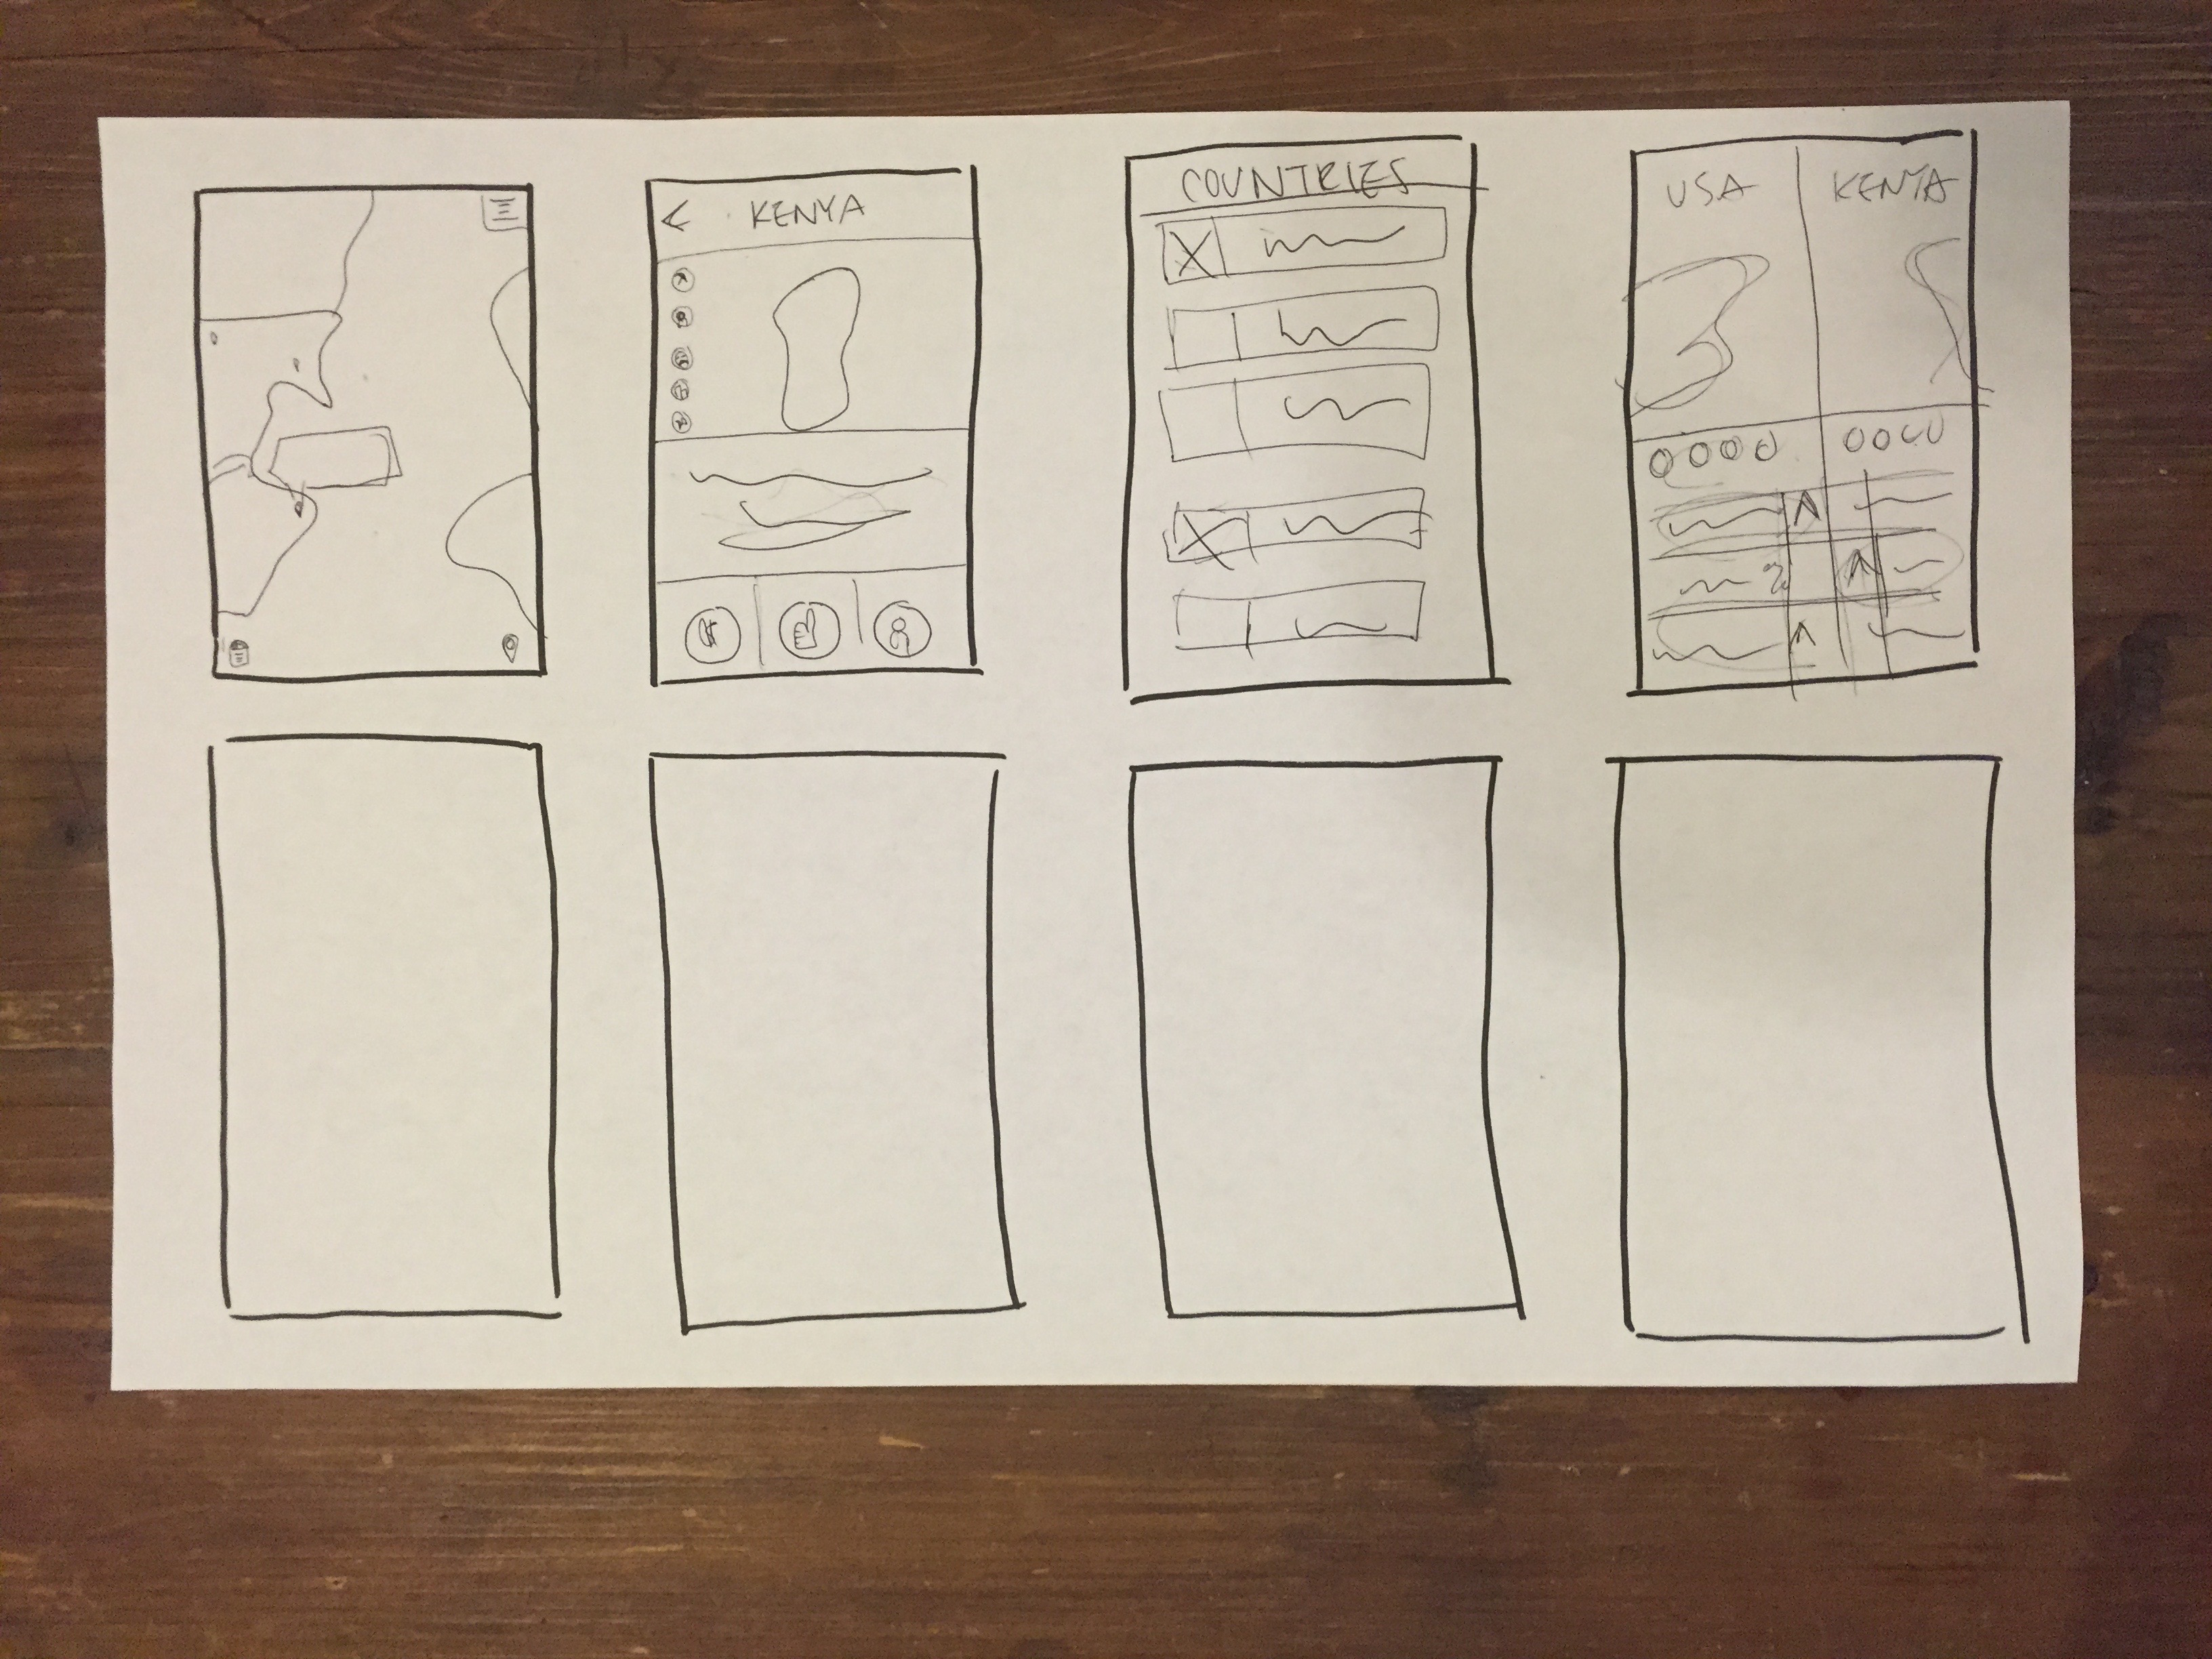 KENYA
COUNTRIES
USA
KENYA